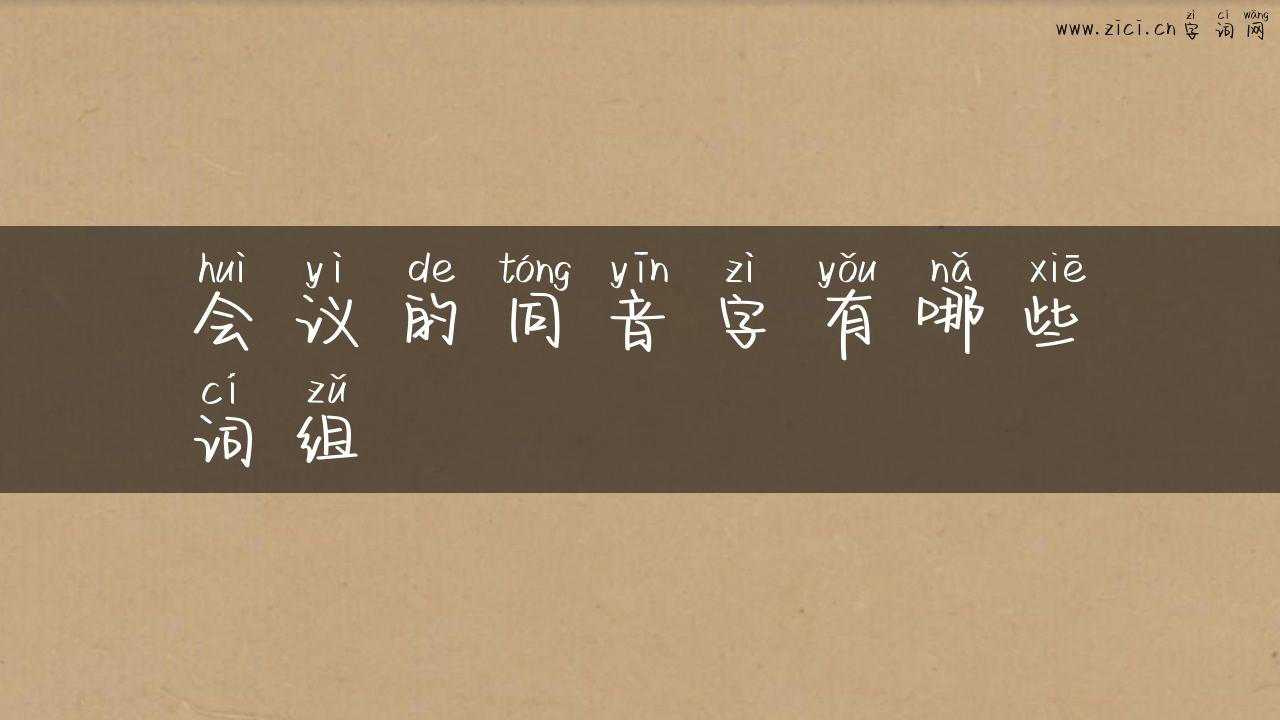 zì cí wǎng
www.zici.cn 字 词 网
huì yì de tóng yīn zì yǒu nǎ xiē
会 议 的 同 音 字 有 哪 些
cí zǔ
词 组